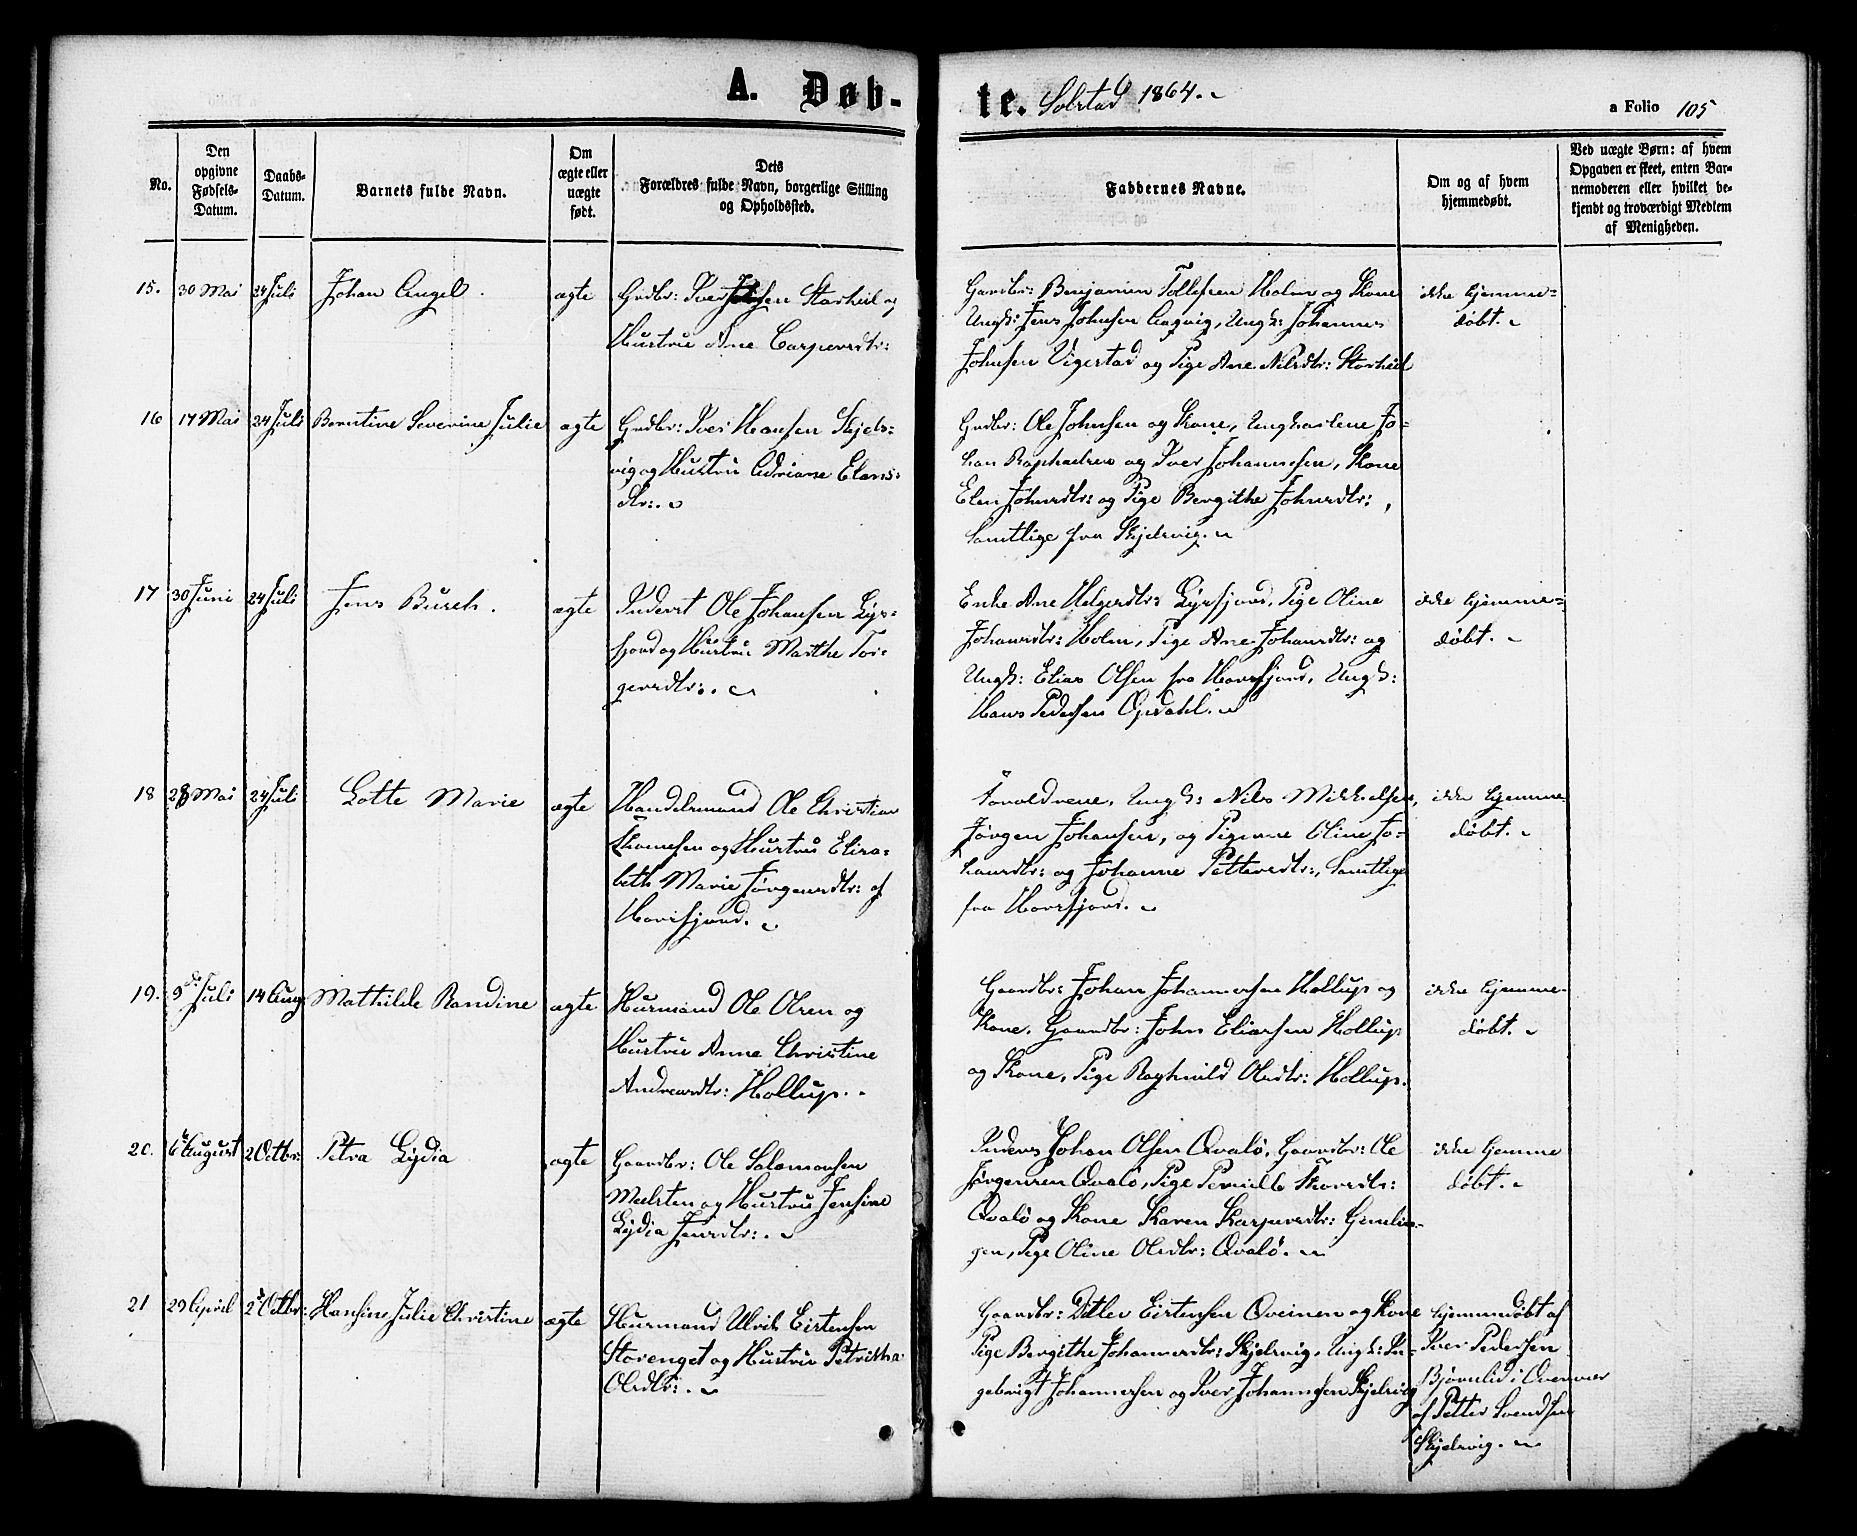 A. Døb-
te. Solstad 1864.
a Folio 105
No.
Den opgivne Fødsels-Datum.
Daabs-Datum.
Barnets fulde Navn.
Om ægte eller uægte født.
Dets Forældres fulde Navn, borgerlige Stilling og Opholdssted.
Faddernes Navne.
Om og af hvem hjemmedøbt.
Ved uægte Børn: af hvem Opgaven er skeet, enten Barnemoderen eller hvilket bekjendt og troværdigt Medlem af Menigheden.
15. 30 Mai 24 Juli Johan Angel. ægte
Grdbr: Iver Johnsen Storheil og
Hustru Ane Caspersdtr:
Gaardbr: Benjamin Tollefsen Holm og Kone
Ungk: Jens Johnsen Aagvig, Ungk: Johannes
Johnsen Vigestad og Pige Ane Nilsdtr: Storheil
ikke hjemme-
døbt.
16 17 Mai 24 Juli Berntine Severine Julie ægte
Grdbr: Iver Hansen Skjels-
vig og Hustru Adriane Elias-
dtr:.
Grdbr: Ole Johnsen og Kone, Ungkarlene Jo-
han Raphaelsen og Iver Johannesen, Kone
Elen Johnsdtr: og Pige Bergithe Johnsdtr:,
Samtlige fra Skjelsvig.
17 30 Juni 24 Juli Jens Busch. ægte
Inderst Ole Johansen Lys-
fjord og Hustru Marthe Tor-
gersdtr:.
Enke Ane Helgesdtr: Lysfjord, Pige Oline
Johansdtr: Holm, Pige Ane Johansdtr: og
Ungk: Elias Olsen fra Horsfjord, Ungk:
Hans Pedersen Opdahl.
ikke hjemme-
døbt.
18 28 Mai 24 Juli Lotte Marie ægte
Handelsmand Ole Christian
Thomesen og Hustru Elisa-
beth Marie Jørgensdtr: af
Horsfjord.
Forældrene, Ungk: Nils Mikkelsen,
Jørgen Johansen, og Pigerne Oline Jo-
hansdtr: og Johanne Pettersdtr:, Samtlige
fra Horsfjord.
ikke hjemme-
døbt.
19. 9de Juli 14 Aug Mathilde Randine ægte
Husmand Ole Olsen og
Hustru Anne Christine
Andreasdtr: Hollup.
Gaardbr: Johan Johannessen Hollup og
Kone, Gaardbr: John Eliassen Hollup
og Kone, Pige Raghnild Olsdtr: Hollup.
ikke hjemme-
døbt.
20. 6te August 2 Octbr: Petra Lydia ægte
Gaardbr: Ole Salamonsen
Mælsten og Hustru Jensine
Lydia Jensdtr:.
Inders Johan Olsen Qvalø, Gaardbr: Ole
Jørgensen Qvalø, Pige
Qvalø og Kone Karen Kaspersdtr:
Pige Oline Olsdtr: Qvalø.
ikke hjemme
døbt.
21 29 April 2d Octbr: Hansine Julie Christine ægte
Husmand Ulrik Eistensen
Storenget og Hustru Petritha
Olsdtr:.
Gaardbr: Ditlev Eistensen Qveinen og Kone
Pige Bergithe Johannesdtr: Skjelsvig, Ungk: In-
gebrigt Johannessen og Iver Johannesen Skjelsvig
hjemmedøbt af
Iver Pedersen
Bjørnlid i Overvær
af Petter Svendsen
Skjelsvig.